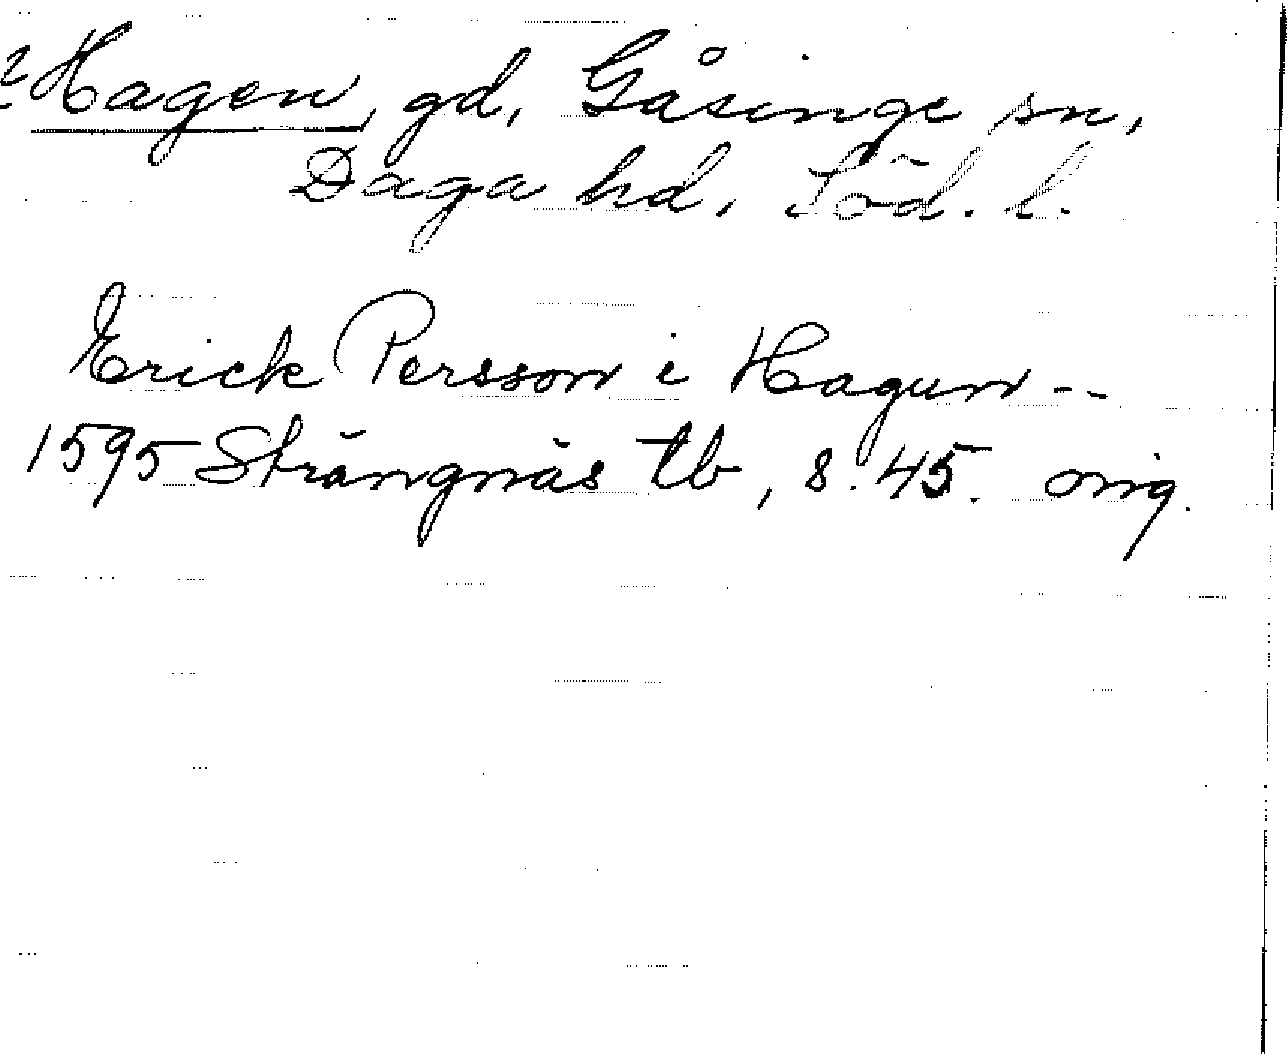 ? Hagen, gd, Gåsinge sn,
Daga hd, Söd. l.
Erick Persson i Hagun --
1595 Strängnäs tb, s. 45. orig.